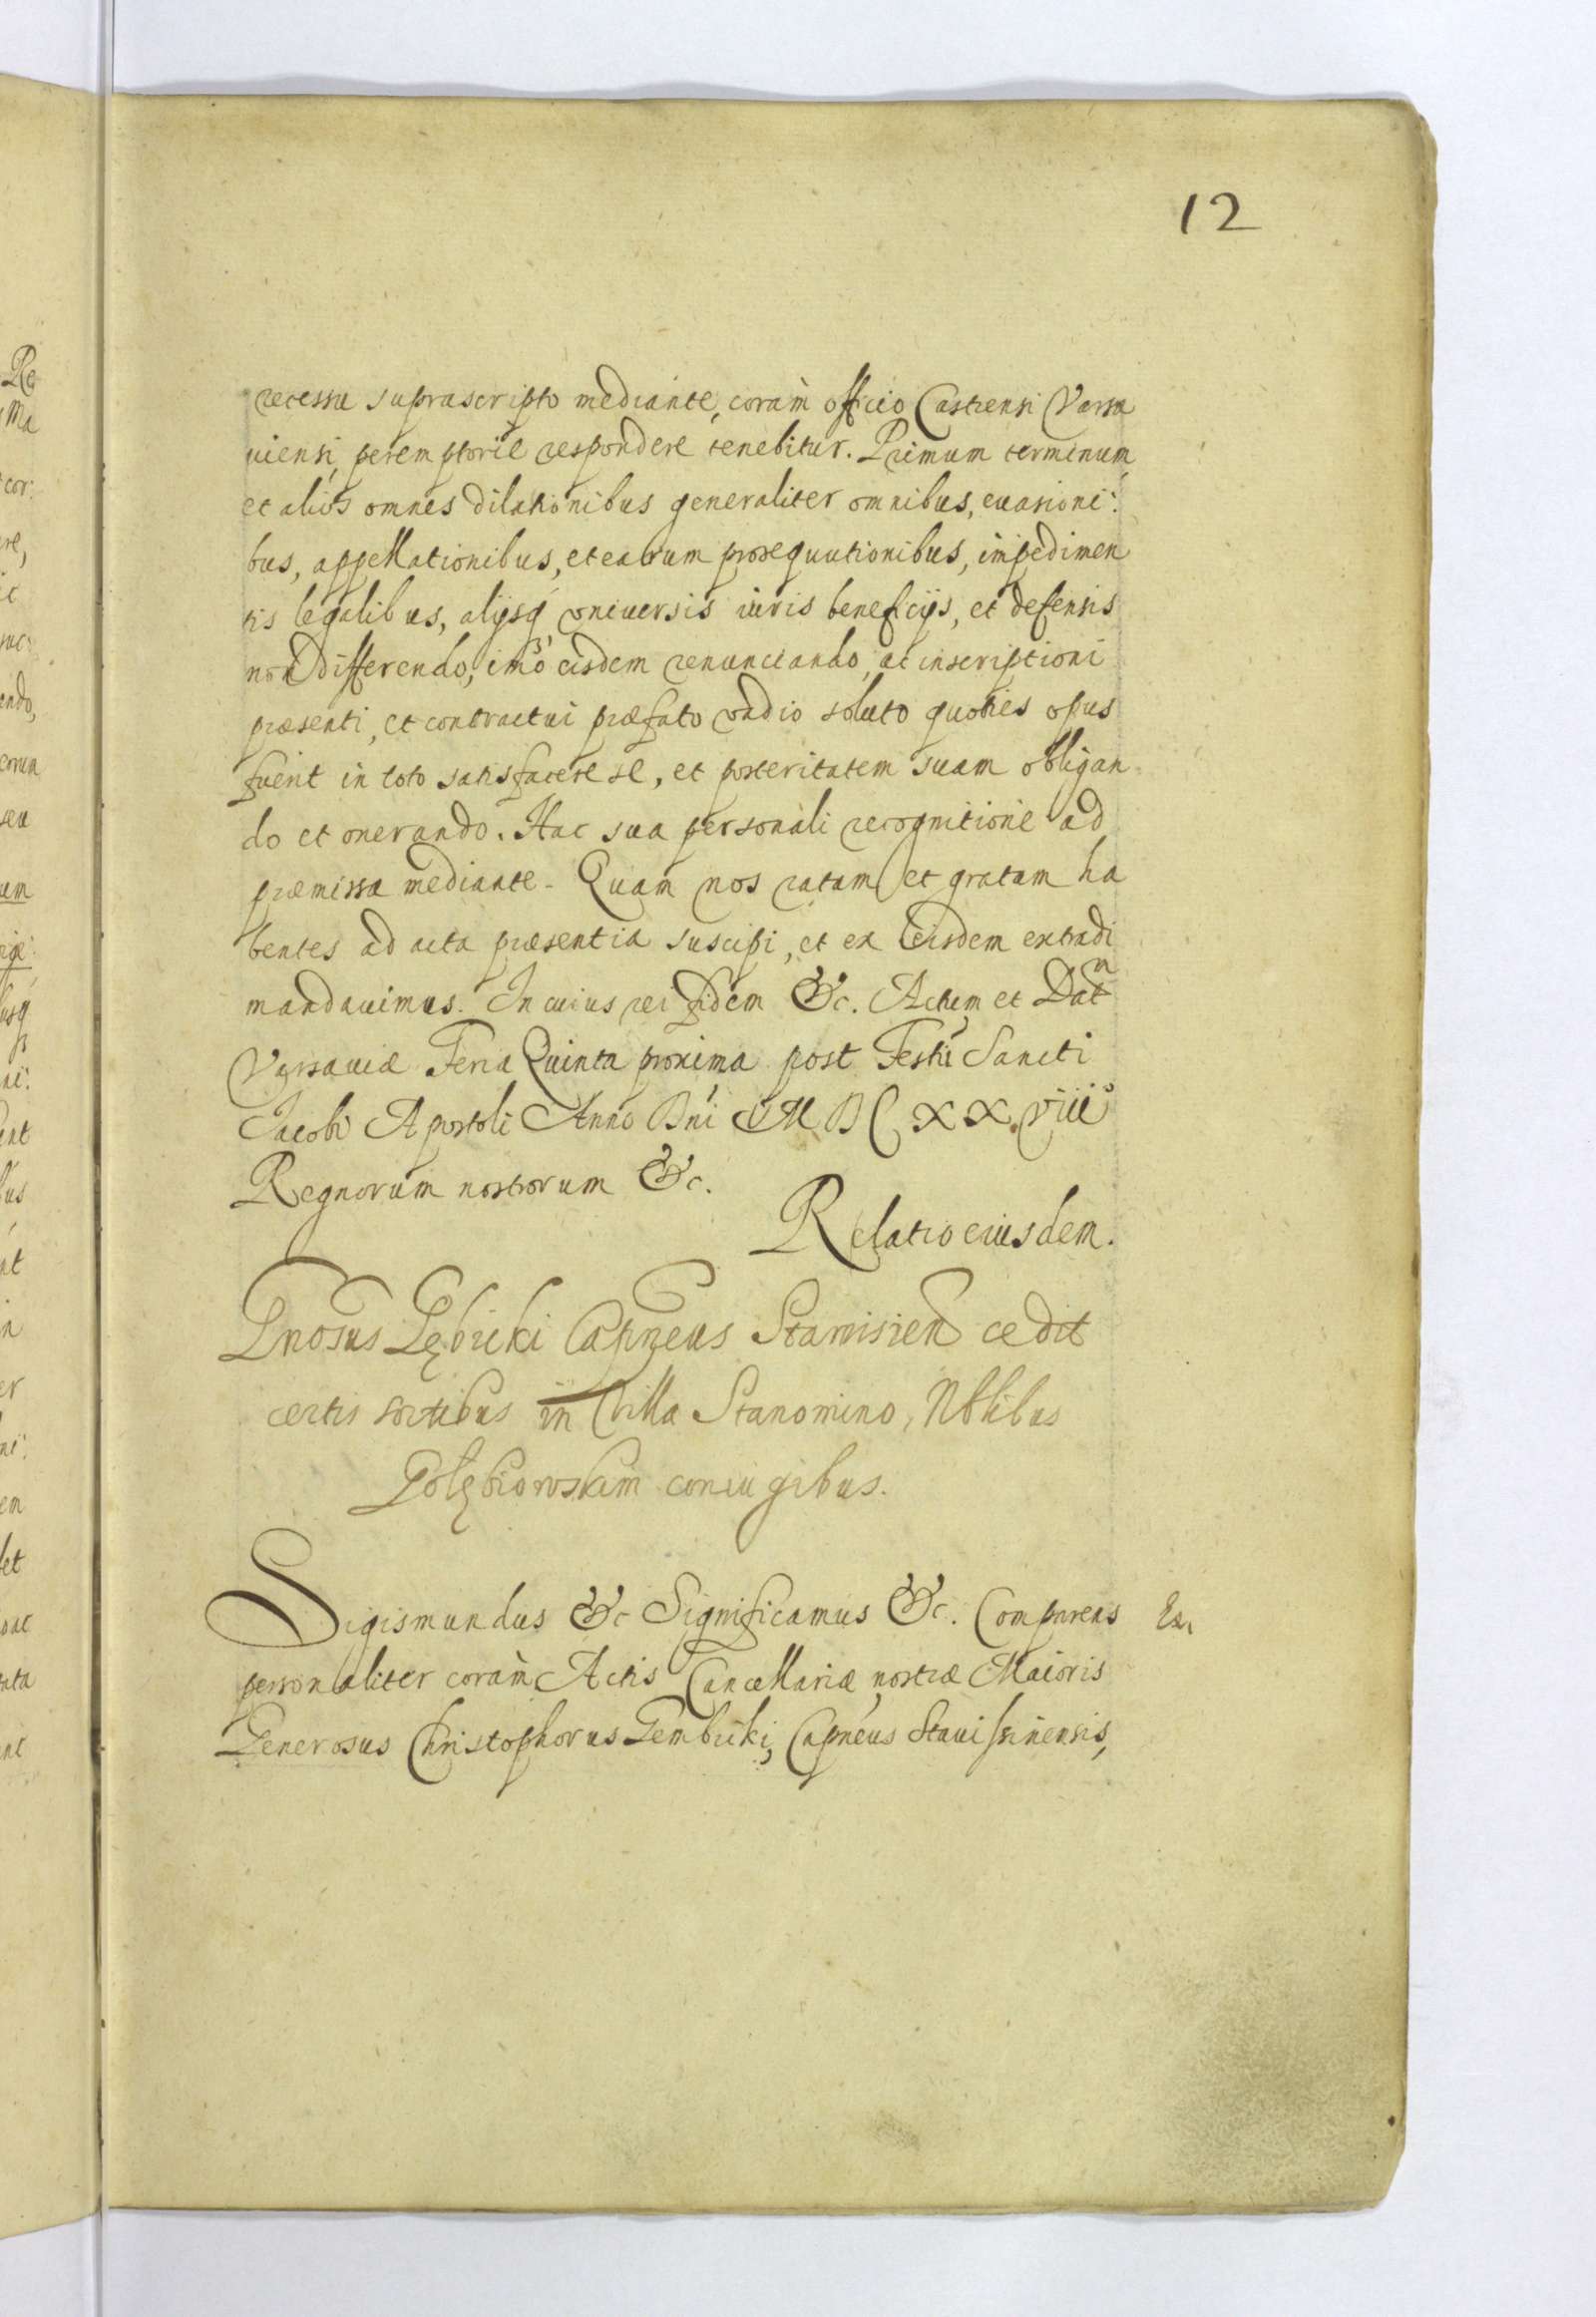 12
recessu suprascripto mediante, coram officio Castrensi Varsa
uiensi, peremptorie respondere tenebitur. Primum terminum
et alios omnes dilationibus generaliter omnibus, euasioni:
bus, appellationibus, et earum prosequutionibus, impedimen
tis legalibus, alijsq vniuersis iuris beneficijs, et defensis
non differendo, imo eisdem renunciando, ac inscriptioni
præsenti, et contractui præfato vadio soluto quoties opus
fuerit in toto satisfacere se, et posteritatem suam obligan
do et onerando. Hac sua personali recognitione ad
præmissa mediante. Quam nos ratam et gratam ha
bentes ad acta præsentia suscipi, et ex eisdem extradi
mandauimus. In cuius rei fidem &c. Actum et Datm
Varsauiæ Feria Quinta proxima post Festũ Sancti
Jacobi Apostoli Anno Dni M D C X X viii
Regnorum nostrorum &c.
Relatio eiusdem.
Gnosus Gębicki Capneus Stawisien cedit
certis sortibus in Villa Stanomino, Nblibus
Golębiowskim coniugibus.
Sigismundus &c Significamus &c. Comparens
Ex.
personaliter coram Actis Cancellariæ nostræ Maioris
Generosus Christophorus Gembicki, Capneus Stauissinensis,
Re
Ma
cor:
ere,
endo,
seu
um
usq
ni:
bus
nt
in
er
ni:
em